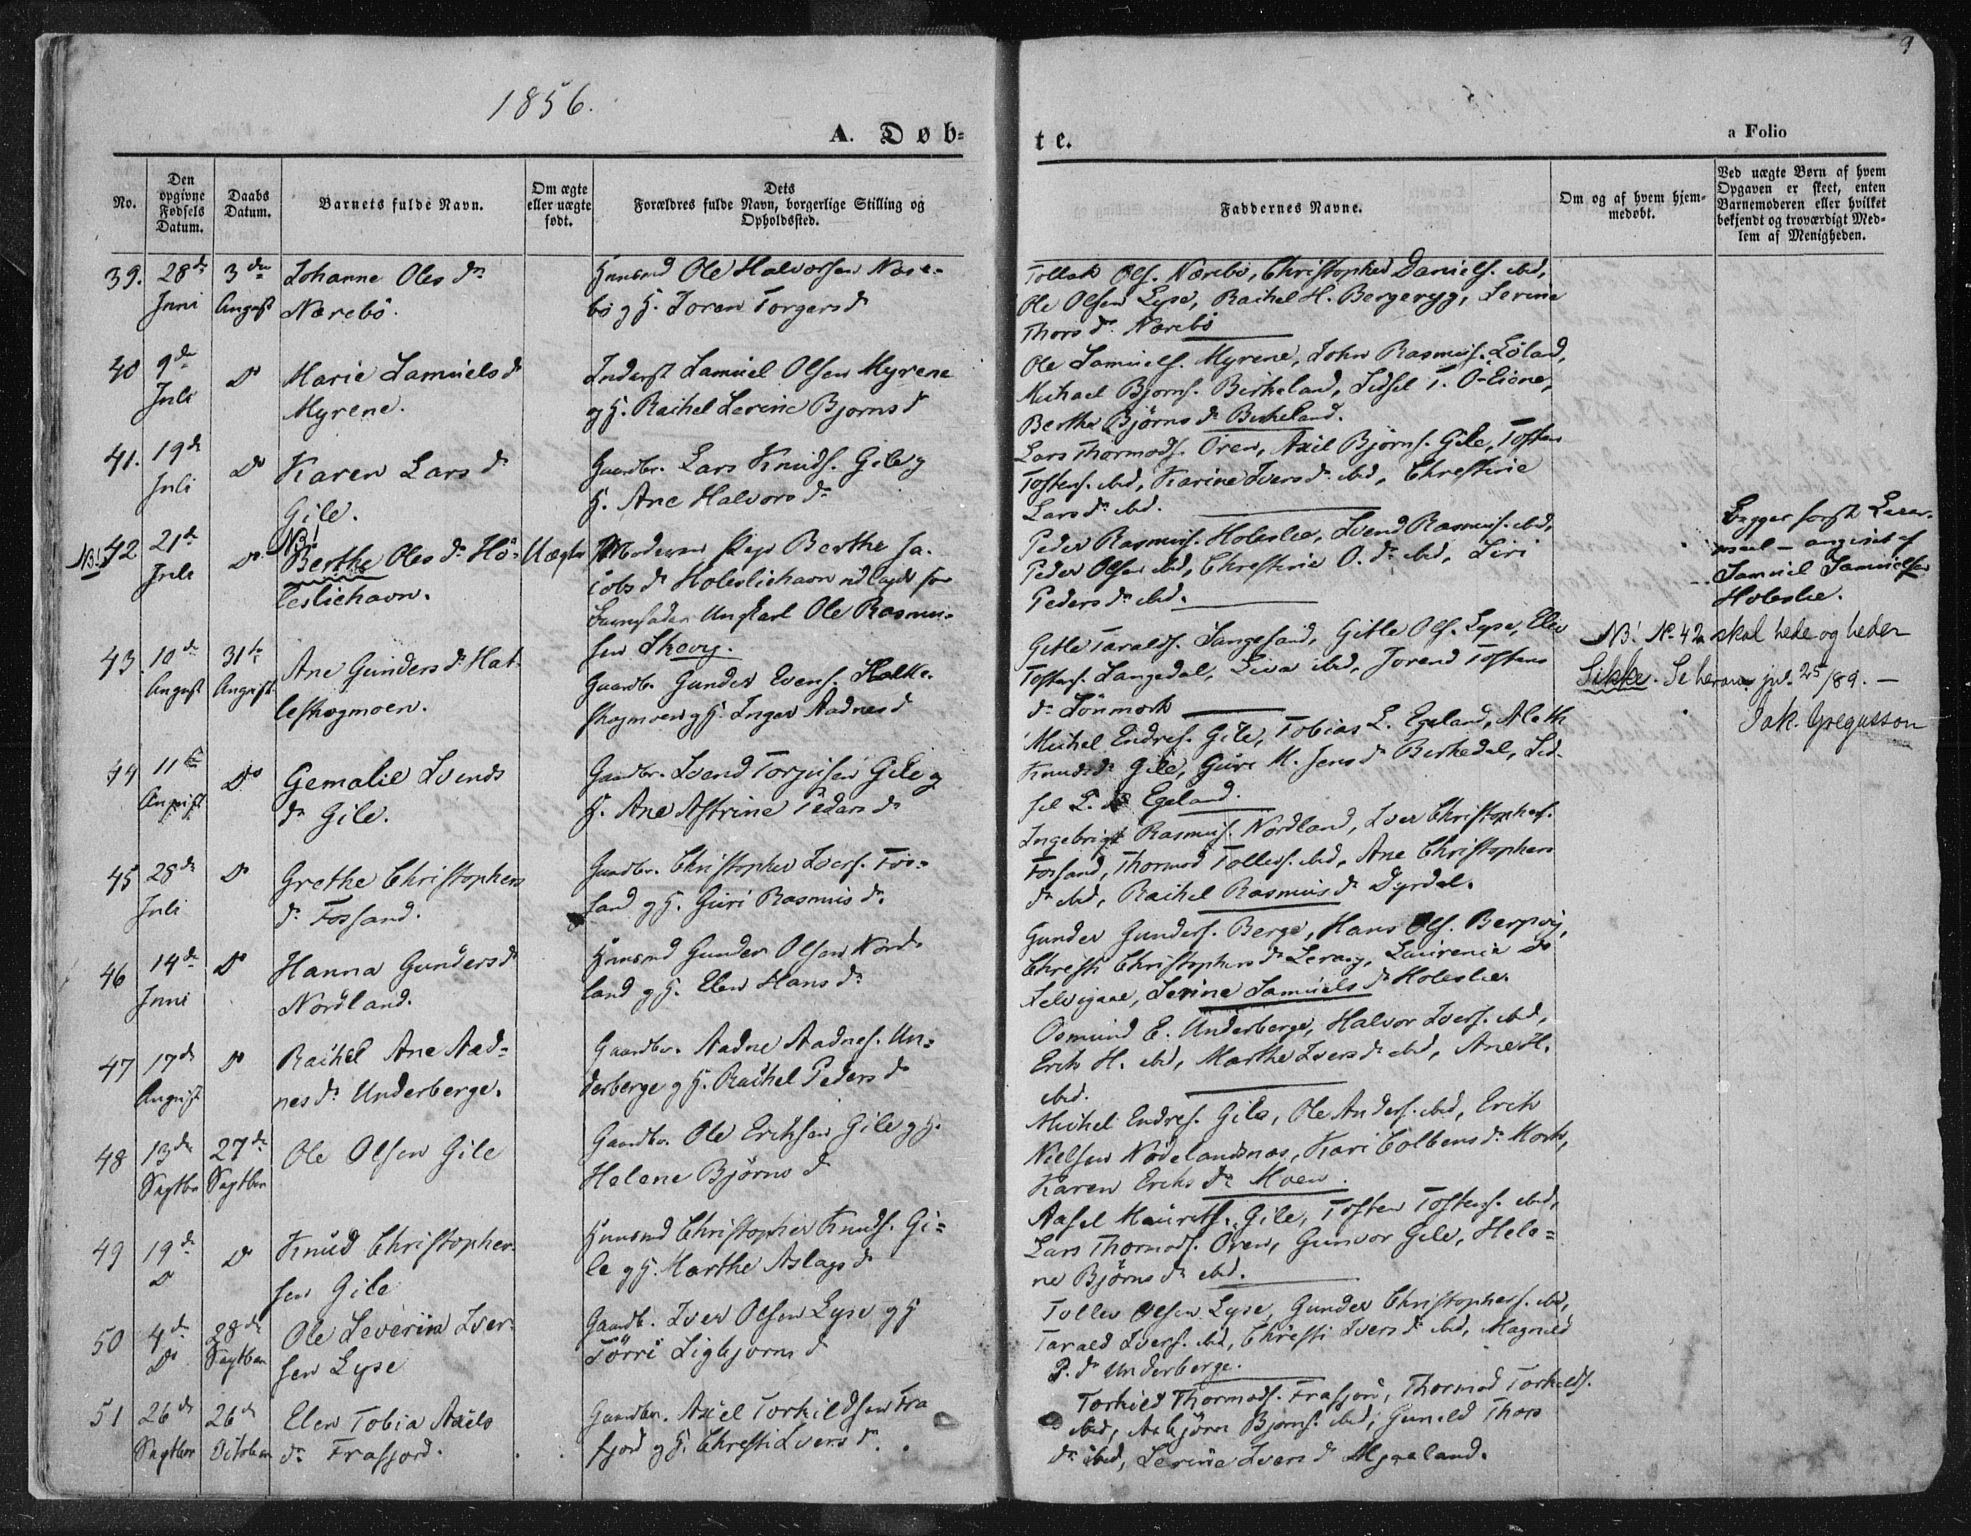 1856.
9
A. Døb=
te.
a Folio
No.
Den opgivne Fødsels Datum.
Daabs Datum.
Barnets fulde Navn.
Om ægte eller uægte født.
Dets Forældres fulde Navn, borgerlige Stilling og Opholdssted.
Faddernes Navne.
Om og af hvem hjemmedøbt.
Ved uægte Børn af hvem Opgaven er skeet, enten Barnemoderen eller hvilket bekjendt og troværdigt Medlem af Menigheden.
39. 28de Juni
3die August
Johanne Olesdr
Nærebö.
Huusmd Ole Halvorsen Næreboe
bö og H. Joren Torgersdr
Tollak Ols. Nærebö, Christopher Daniels. ibid,
Ole Olsen Lyse, Rachel H. Bergeryg, Serine
Thorsdr Nærebö
40 9de Juli
Do
Marie Samuelsdr
Myrene.
Inderst Samuel Olsen Myrene
og H. Rachel Serine Bjornsdr
Ole Samuels. Myrene, John Rasmus. Eölad,
Michael Bjorns. Birkeland, Sidsel T.
Berthe Björnsdr Birkeland.
41. 19de Juli
Do
Karen Larsdr
Gile.
Gaardbr. Lars Knuds. Gile og
H. Ane Halvorsdr
Lars Thormods. Ören, Axil Björns. Gile, Tosten
Tostens. ibid, Karine Iversdr ibid, Christine
Larsdr ibid.
NB! 42 21de Juli
Do
NB!
Berthe Olesdr Hö-
leslichavn.
Uægte
Moderen Pige Berthe Ja-
cobsdr Holeslichavn udlagde som
Barnefader Ungkarl Ole Rasmu-
sen Skovg.
Peder Rasmus. Holeslie, Svend Rasmus. ibid,
Peder Olsen ibid, Christine O.dr ibid, Siri
Pedersdr ibid.
Begges første Leier-
maal – angivet af
Samuel Samuelsen
Holeslie.
NB! No. 42 skal hede og heder
Sikke. Se herom jul. 25/89. –
Jak. Gregusson
43. 10de August
31te August
Ane Gundersdr Hat-
leskogmoen.
Gaardb. Gunder Evens. Hatle-
skogmoen og H. Inger Aadnesdr
Gitle Taralds. Sangesand, Gitle Ols. Lyse, Elev
Tostens. Langedal, Siva ibid, Jorend Tostens
dr Lönmork
44 11te August
Do
Gemalie Svends
dr Gile.
Gaardbr. Svend Torjusen Gile og
H. Ane Astrine Pedersdr
Michel Endres. Gile, Tobias L. Egeland, Aleth
Knudsdr Gile, Guri M. Jensdr Birkedal, Sid-
sel L. dr Egeland.
45 28de Juli
Do
Grethe Christophers
dr Fossand.
Gaardbr. Christopher Ivers. Fos-
sand og H. Guri Rasmusdr.
Ingebrigt Rasmus. Nordland, Iver Christophers.
Fossand, Thormod Tollevs. ibid, Ane Christophers
dr ibid, Rachel Rasmusdr Dyrdal.
46 14de Juni
Do
Hanna Gundersdr
Nordland.
Huusmd Gunder Olsen Nord-
land og H. Elen Hansdr
Gunder Gunders. Berge, Hans Ols. Bergsvig,
Christi Christophersdr Leraug, Laurenia dr
Selvigaae, Serine Samuelsdr Holeslie.
47 17de August
Do
Rachel Ane Aad-
nesdr Underberge.
Gaardbr. Aadne Aadnes. Un-
derberge og H. Rachel Pedersdr
Osmund E. Underberge, Halvor Ivers. ibid,
Erik H. ibid, Marthe Iversdr ibid, Ane H.
ibid.
48 13de Septbr
27de Septbr
Ole Olsen Gile
Gaardbr. Ole Eriksen Gile og H.
Helene Björnsdr
Michel Endres. Gile, Ole Anders. ibid, Erik
Nielsen Nödelandsnæs, Kari Colbensdr Mork,
Karen Eriksdr Moen.
49 19de Do
Do
Knud Christopher-
sen Gile
Huusmd Christopher Knuds. Gi-
le og H. Marthe Aslagsdr
Aasel Maurits. Gile, Tosten Tostens. ibid,
Lars Thormods. Ören, Gunvor Gile, Hele-
ne Björnsdr ibid.
50 4de Do
28de Septbr
Ole Severin Iver-
sen Lyse
Gaardb. Iver Olsen Lyse og H
Törri Sigbjornsdr
Tollev Olsen Lyse, Gunder Christophers. ibid,
Tarald Ivers. ibid, Christi Iversdr ibid, Magnild
P.dr Underberge.
51 26de Septbr
26de October
Elen Tobia Axels
dr Frafjord.
Gaardbr. Axel Torkildsen Fra
fjord og H. Christi Iversdr.
Torkild Thormods. Frafjord, Thormod Torkelds.
ibid, Asbjörn Bjorns. ibid, Gunild Thors
dr ibid, Serine Iversdr Mjaaland.